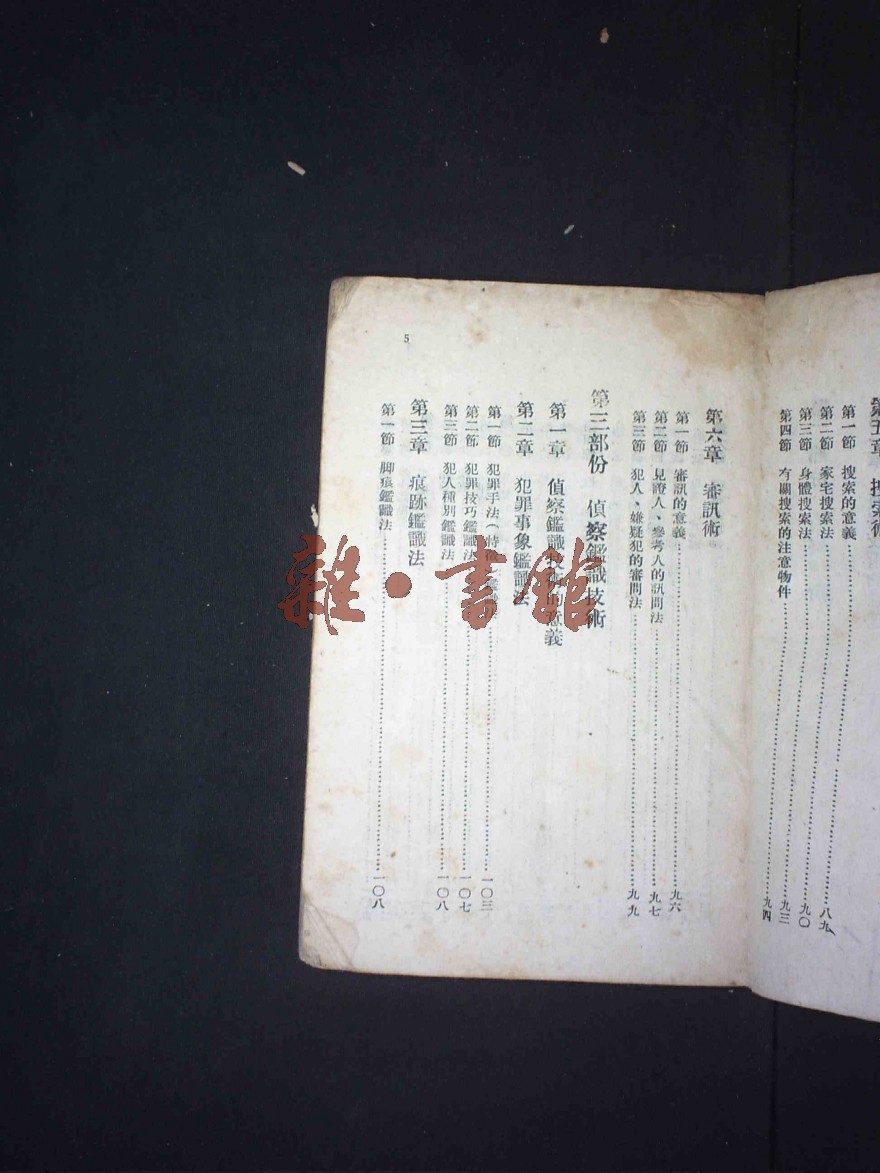 搜索術
第一節　搜索的意義……八九
第二節　家宅搜索法……九〇
第三節　身體搜索法……九三
第四節　有關搜索的注意物件……九四
第六章　審訊術
第一節　審訊的意義……九六
第二節　見證人、參考人的訊問法……九七
第三節　犯人、嫌疑犯的審問法……九九
第三部份　偵察鑑識技術
第一章　偵察鑑識技術的意義
第二章　犯罪事象鑑識法
第一節　犯罪手法（特徵）鑑識法……一〇三
第二節　犯罪技巧鑑識法……一〇七
第三節　犯人種別鑑識法……一〇八
第三章　痕跡鑑識法
第一節　脚痕鑑識法……一〇八
5
雜·書館